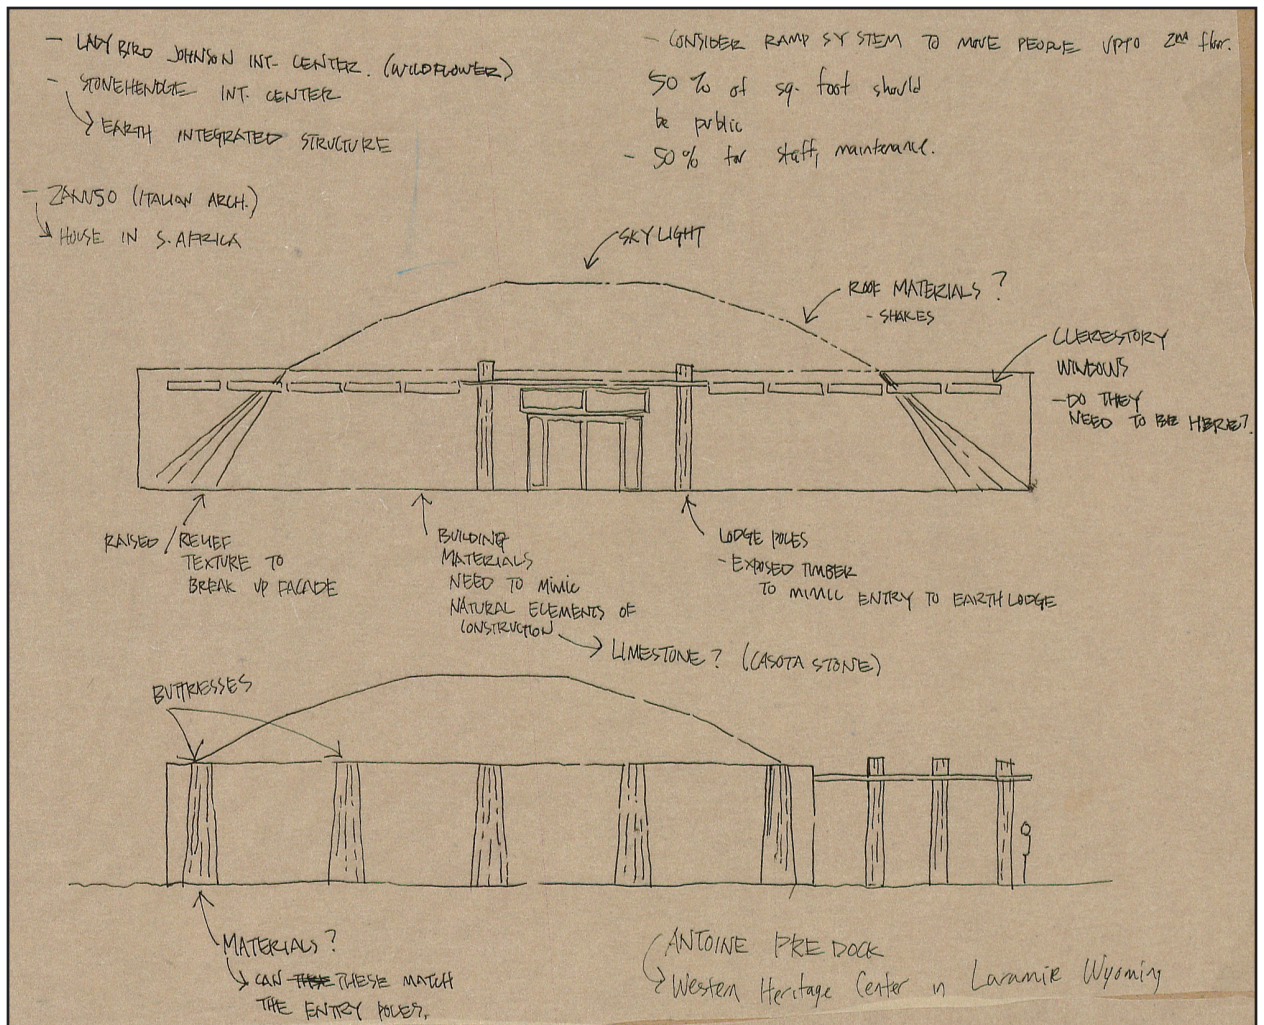 - LADY BIRD JOHNSON INT. CENTER. (WILDFLOWER)
- STONEHENDGE INT. CENTER
EARTH INTEGRATED STRUCTURE
- ZANUSO (ITALIAN ARCH.)
HOUSE IN S. AFRICA
- CONSIDER RAMP SYSTEM TO MOVE PEOPLE UPTO 2nd floor.
50 % of sq. foot should
be public
- 50% for staff, maintenance.
SKYLIGHT
ROOF MATERIALS ?
- SHAKES
CLERESTORY
WINDOWS
- DO THEY
NEED TO BE HERE?
RAISED / RELIEF
TEXTURE TO
BREAK UP FACADE
BUILDING
MATERIALS
NEED TO MIMIC
NATURAL ELEMENTS OF
CONSTRUCTION
LIMESTONE ? (CASOTA STONE)
LODGE POLES
- EXPOSED TIMBER
TO MIMIC ENTRY TO EARTH LODGE
BUTTRESSES
MATERIALS ?
CAN THESE THESE MATCH
THE ENTRY POLES.
ANTOINE PREDOCK
Western Heritage Center in Laramie Wyoming